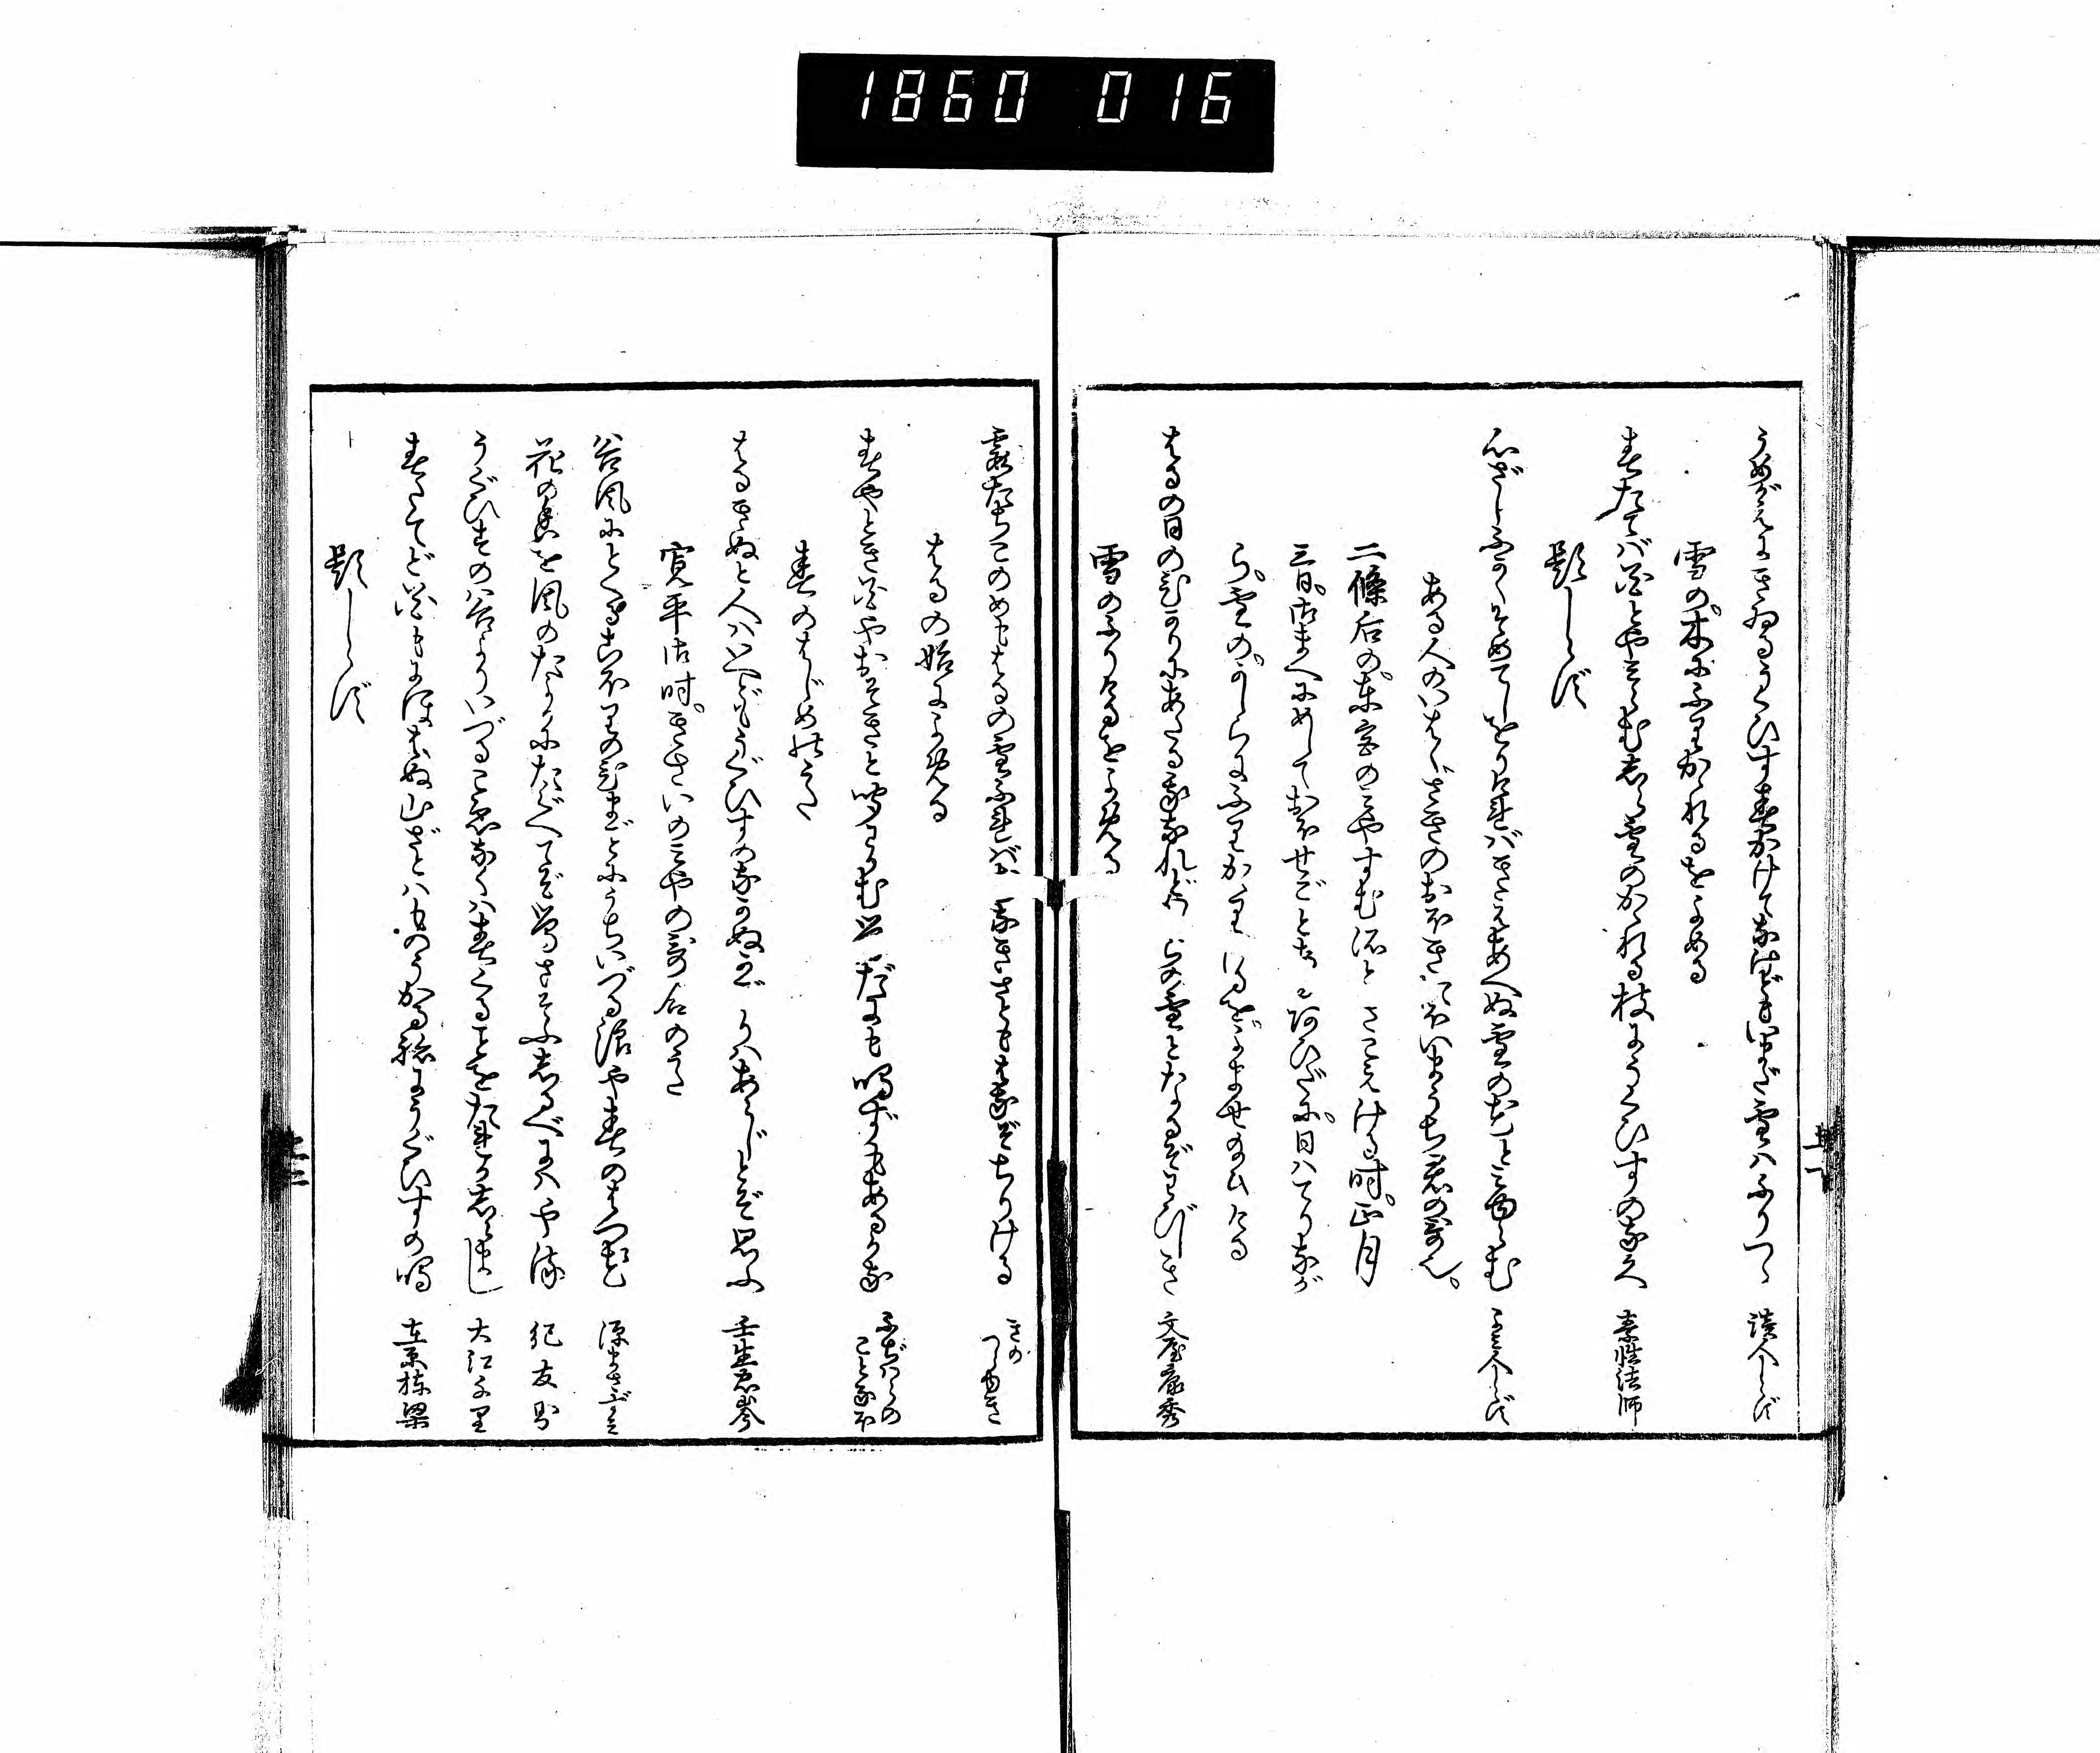 1860 016
うめがえにきゐるうぐひす春かけてなけどもいまだ雪はふりつゝ 讀人しらず
雪の木にふりかゝれるをよめる
春たてば花とやみらむ白雪のかゝれる枝にうぐひすの鳴 素性法師
題しらず
心ざしふかくそめてしをりければきえあへぬ雪の花とみゆらむ よみ人しらず
ある人のいはくさきのおほきおほいまうち君の哥也
二條后の東宮のみやすむ所ときこえける時正月
三日御まへにめしておほせごとあるあひだに日はてりなが
ら雪のかしらにふりかゝりけるをよませ給ひける
はるの日のひかりにあたる我なれどかしらの雪となるぞわびしき 文屋康秀
雪のふりけるをよめる
霞たちこのめもはるの雪ふれば花なきさとも花ぞちりける きのつらゆき
はるの始によめる
春やとき花やおそきと聞わかむ鶯だにも鳴ずもあるかな ふぢはらのことなほ
春のはじめのうた
はるきぬと人はいへどもうぐひすのなかぬかぎりはあらじとぞ思ふ 壬生忠岑
寛平御時きさいのみやの哥合のうた
谷風にとくる氷のひまごとにうちいづる浪や春のはつ花 源まさずみ
花の香を風のたよりにたぐへてぞ鶯さそふしるべにはやる 紀友則
うぐひすの谷よりいづるこゑなくは春くることをたれかしらまし 大江千里
春たてど花もにほはぬ山ざとはものうかる音にうぐひすの鳴 在原棟梁
題しらず